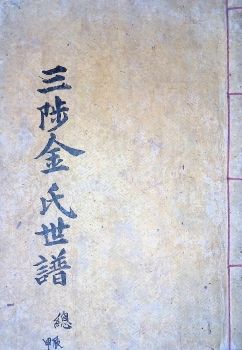 三陟金氏世譜
總